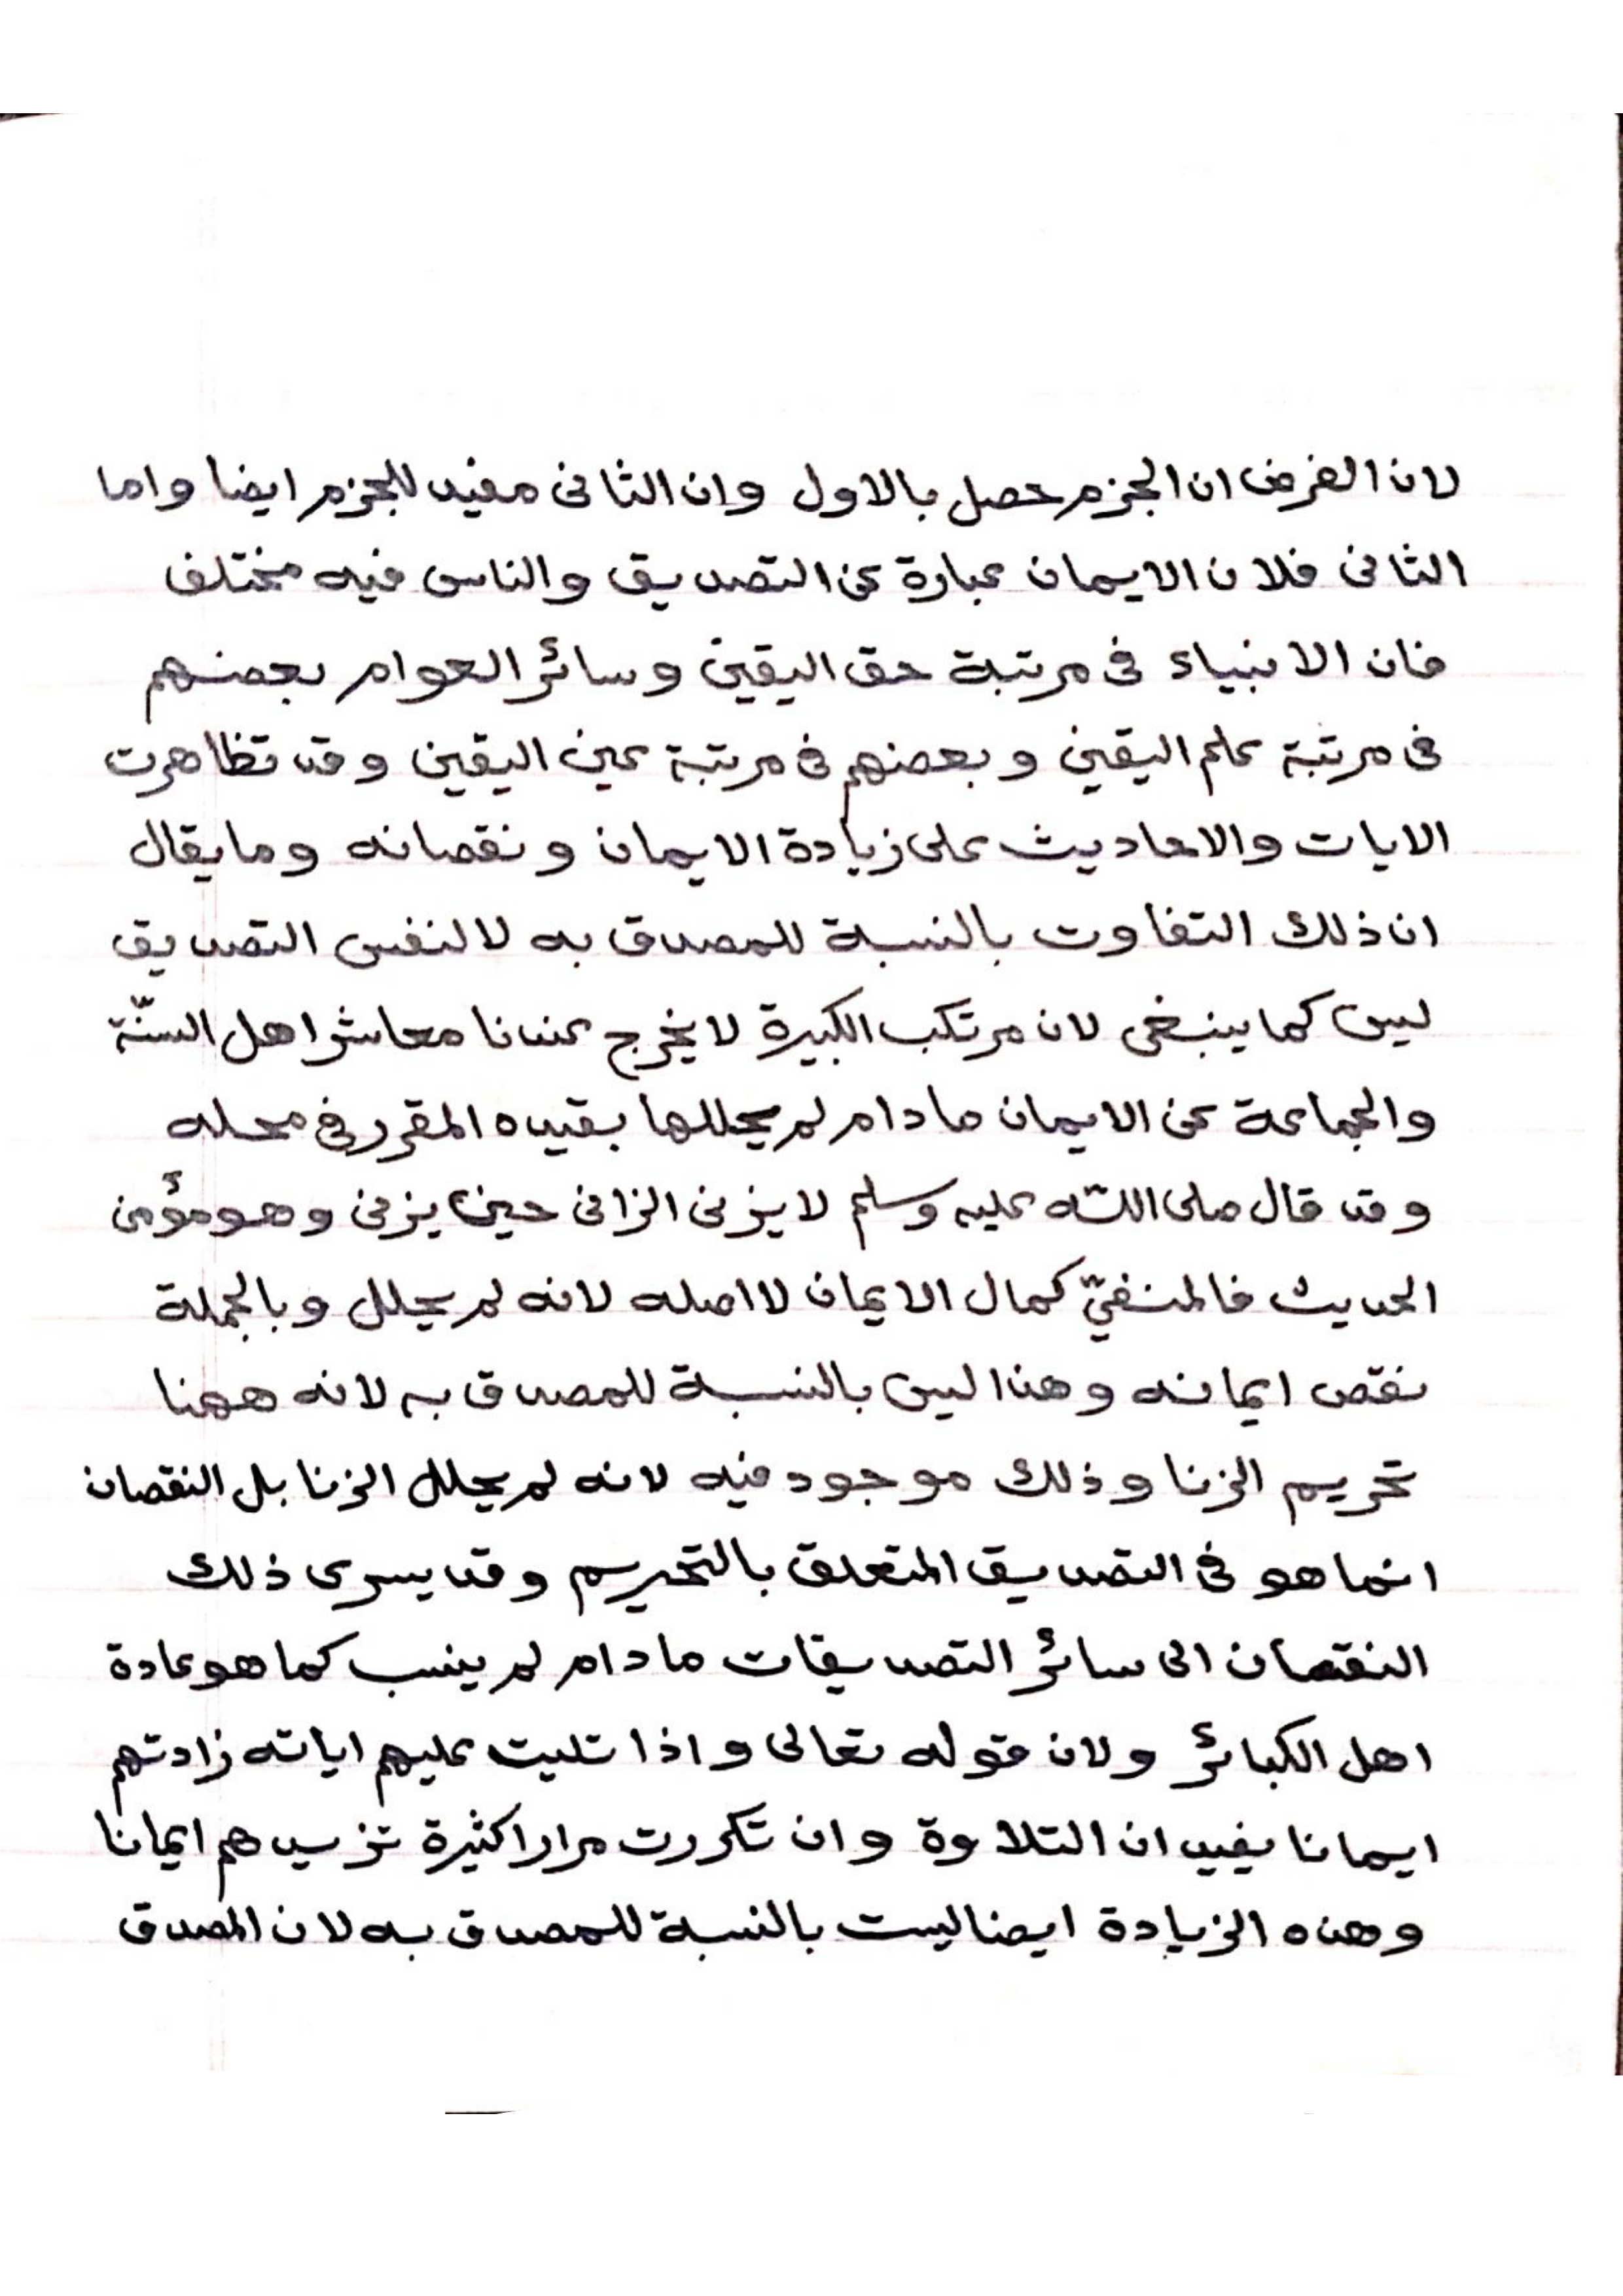 لان الفرض ان الجزم حصل بالاول وان الثانى مفيد للجزم ايضا واما
الثانى فلان الايمان عبارة عن التصديق والناس فيه مختلف
فان الانبياء فى مرتبة حق اليقين وسائر العوام بعضهم
فى مرتبة علم اليقين وبعضهم فى مرتبة عين اليقين وقد تظاهرت
الايات والاحاديث على زيادة الايمان ونقصانه وما يقال
ان ذلك التفاوت بالنسبة للمصدق به لا لنفس التصديق
ليس كما ينبغى لان مرتكب الكبيرة لا يخرج عندنا معاشر اهل السنّة
والجماعة عن الايمان ما دام لم يحللها بقيده المقرر فى محله
وقد قال صلى اللّه عليه وسلم لا يزنى الزانى حين يزنى وهو مؤمن
الحديث فالمنفيّ كمال الايمان لا اصله لانه لم يحلل وبالجملة
نقص ايمانه وهذا ليس بالنسبة للمصدق به لانه ههنا
تحريم الزنا وذلك موجود فيه لانه لم يحلل الزنا بل النقصان
انما هو فى التصديق المتعلق بالتحريم وقد يسرى ذلك
النقصان الى سائر التصديقات ما دام لم ينسب كما هو عادة
اهل الكبائر ولان قوله تعالى واذا تليت عليهم اياته زادتهم
ايمانا يفيد ان التلاوة وان تكررت مرارا كثيرة تزيدهم ايمانا
وهذه الزيادة ايضا ليست بالنسبة للمصدق به لان المصدق